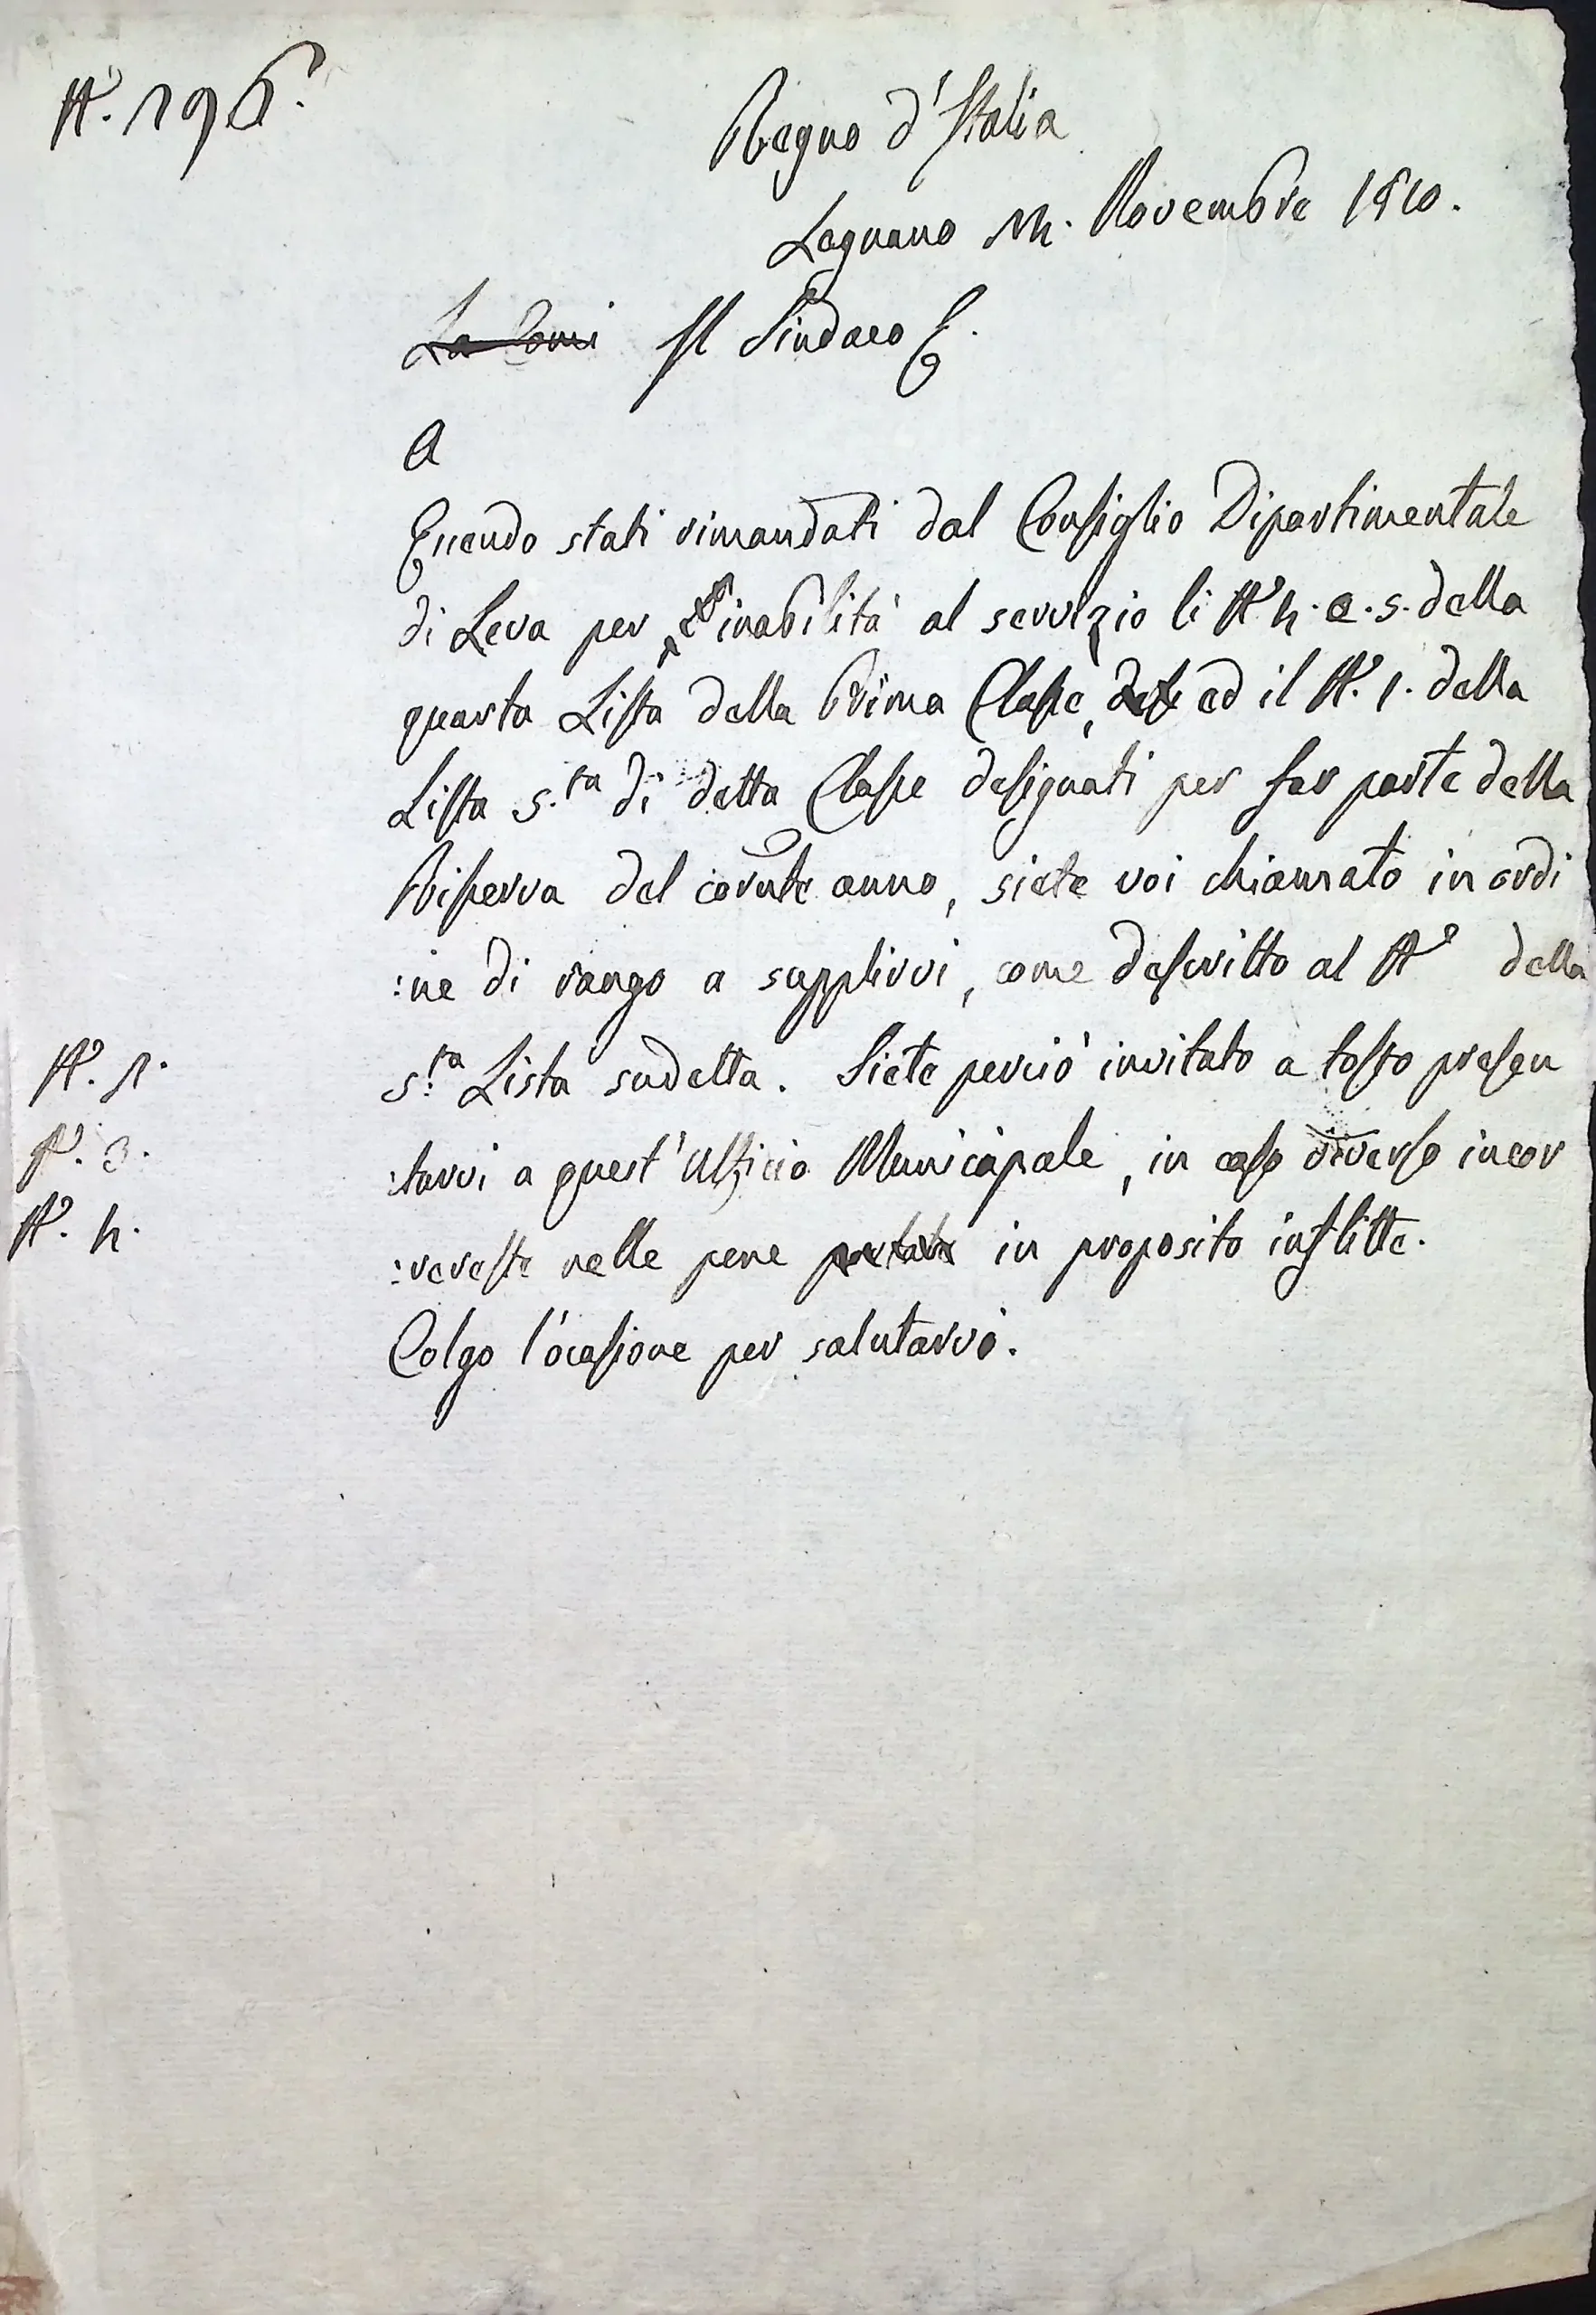 N.° 196.
Regno d'Italia
Legnano 14. Novembre 1810.
La Comi Il Sindaco C.
A
Essendo stati rimandati dal Consiglio Dipartimentale
di Leva per inabilità al servizio li N.i 4. e. 5. della
quarta Lista della Prima Classe, ed il N. 1. della
Lista 5.ta di detta Classe designati per far parte della
Riserva del corrnte anno, siete voi chiamato in ordi
:ne di rango a supplirvi, come descritto al N.° della
5.ta Lista sudetta. Siete perciò invitato a tosto presen
:tarvi a quest'Uffizio Municipale, in caso diverso incor
:rereste nelle pene in proposito inflitte.
Colgo l'ocasione per salutarvi.
N.° 1.
N.° 3.
N.° 4.